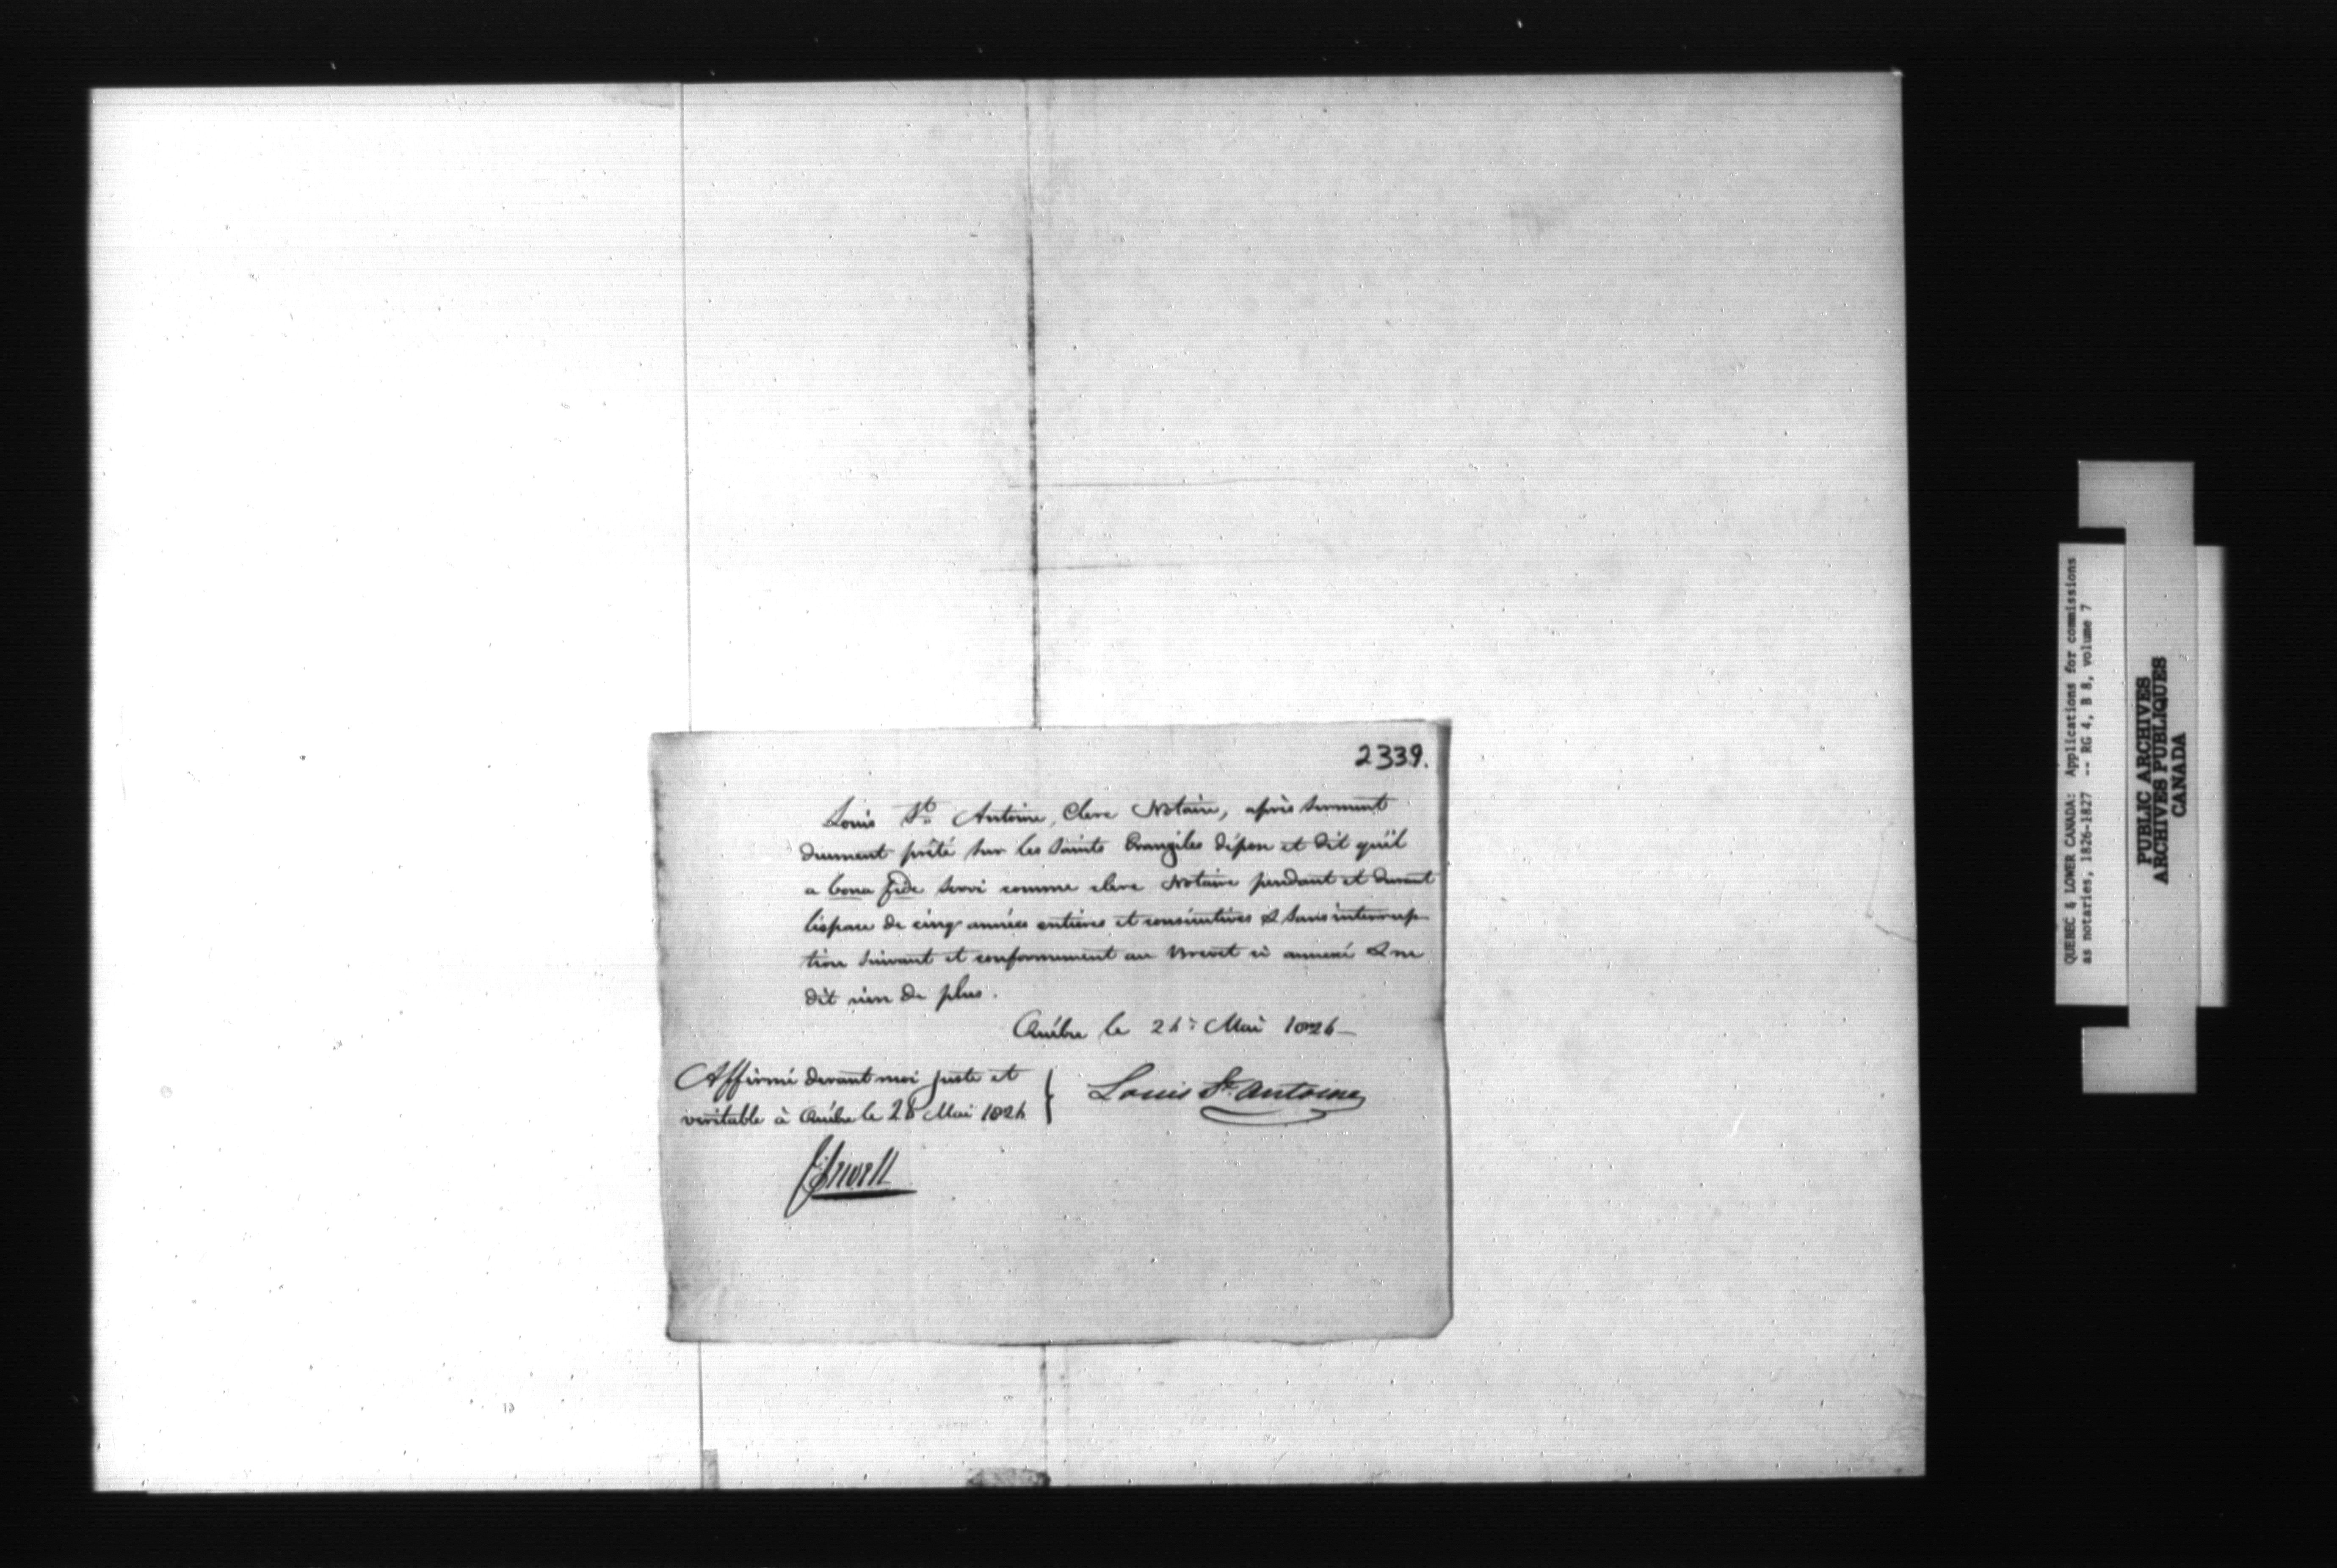 2339.
Louis Ste Antoine, Clerc Notaire, après serment
duement prêté sur les saints Evangiles dépose et dit qu'il
a bona fide servi comme clerc Notaire pendant et durant
l'espace de cinq années entières et consécutives & sans interrup
tion suivant et conformement au Brevet ci annexé & ne
dit rien de plus.
Québec le Mai 1826
Affirmé devant moi juste et
veritable à Québec le Mai 1826
Louis St. Antoine
Sewell
QUEBEC & LOWER CANADA: Applications for commissions
as notaries, 1826-1827 -- RG 4, B 8, volume 7
PUBLIC ARCHIVES
ARCHIVES PUBLIQUES
CANADA